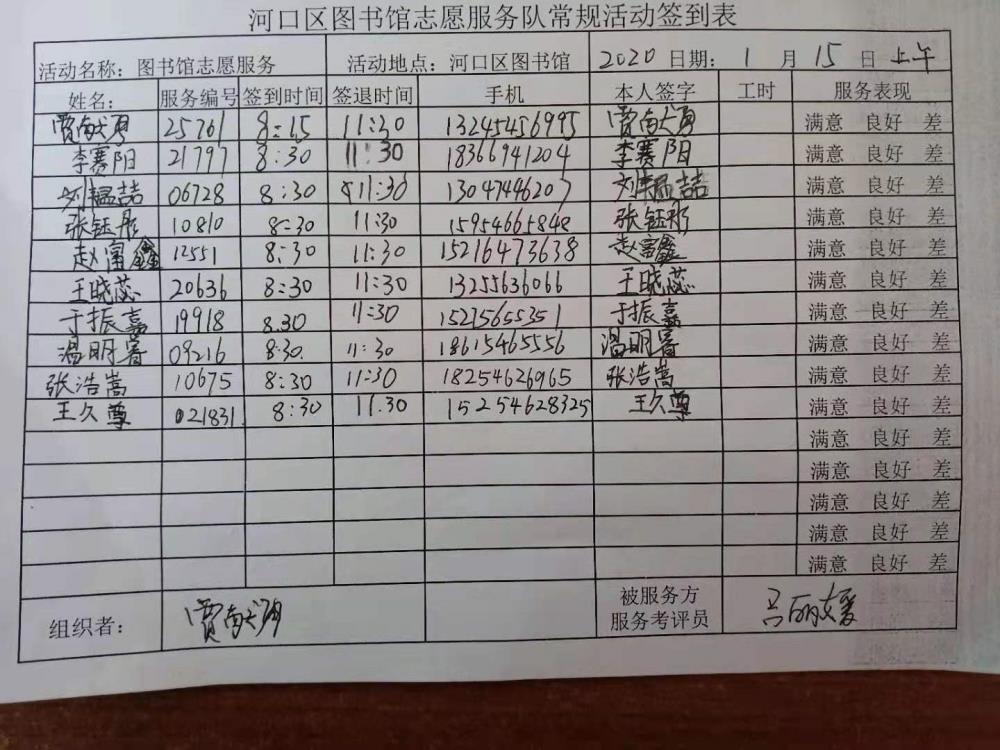 河口区图书馆志愿服务队常规活动签到表
活动名称：图书馆志愿服务 活动地点：河口区图书馆 2020 日期： 1 月 15 日 上午
姓名： 服务编号 签到时间 签退时间 手机 本人签字 工时 服务表现
贾献勇 25761 8:15 11:30 13245456995 贾献勇 满意 良好 差
李赛阳 21797 8:30 11:30 18366941204 李赛阳 满意 良好 差
刘韫喆 06728 8:30 11:30 13047446207 刘韫喆 满意 良好 差
张钰彤 10810 8:30 11:30 15954665848 张钰彤 满意 良好 差
赵富鑫 12551 8:30 11:30 15216473638 赵富鑫 满意 良好 差
王晓蕊 20636 8:30 11:30 13255636066 王晓蕊 满意 良好 差
于振嘉 19918 8.30 11:30 15275655351 于振嘉 满意 良好 差
温明睿 09216 8:30. 11:30 18615465556 温明睿 满意 良好 差
张浩嵩 10675 8:30 11:30 18254626965 张浩嵩 满意 良好 差
王久尊 021831. 8:30 11.30 15254628325 王久尊 满意 良好 差
满意 良好 差
满意 良好 差
满意 良好 差
满意 良好 差
满意 良好 差
组织者： 贾献勇 被服务方 吕丽媛
服务考评员